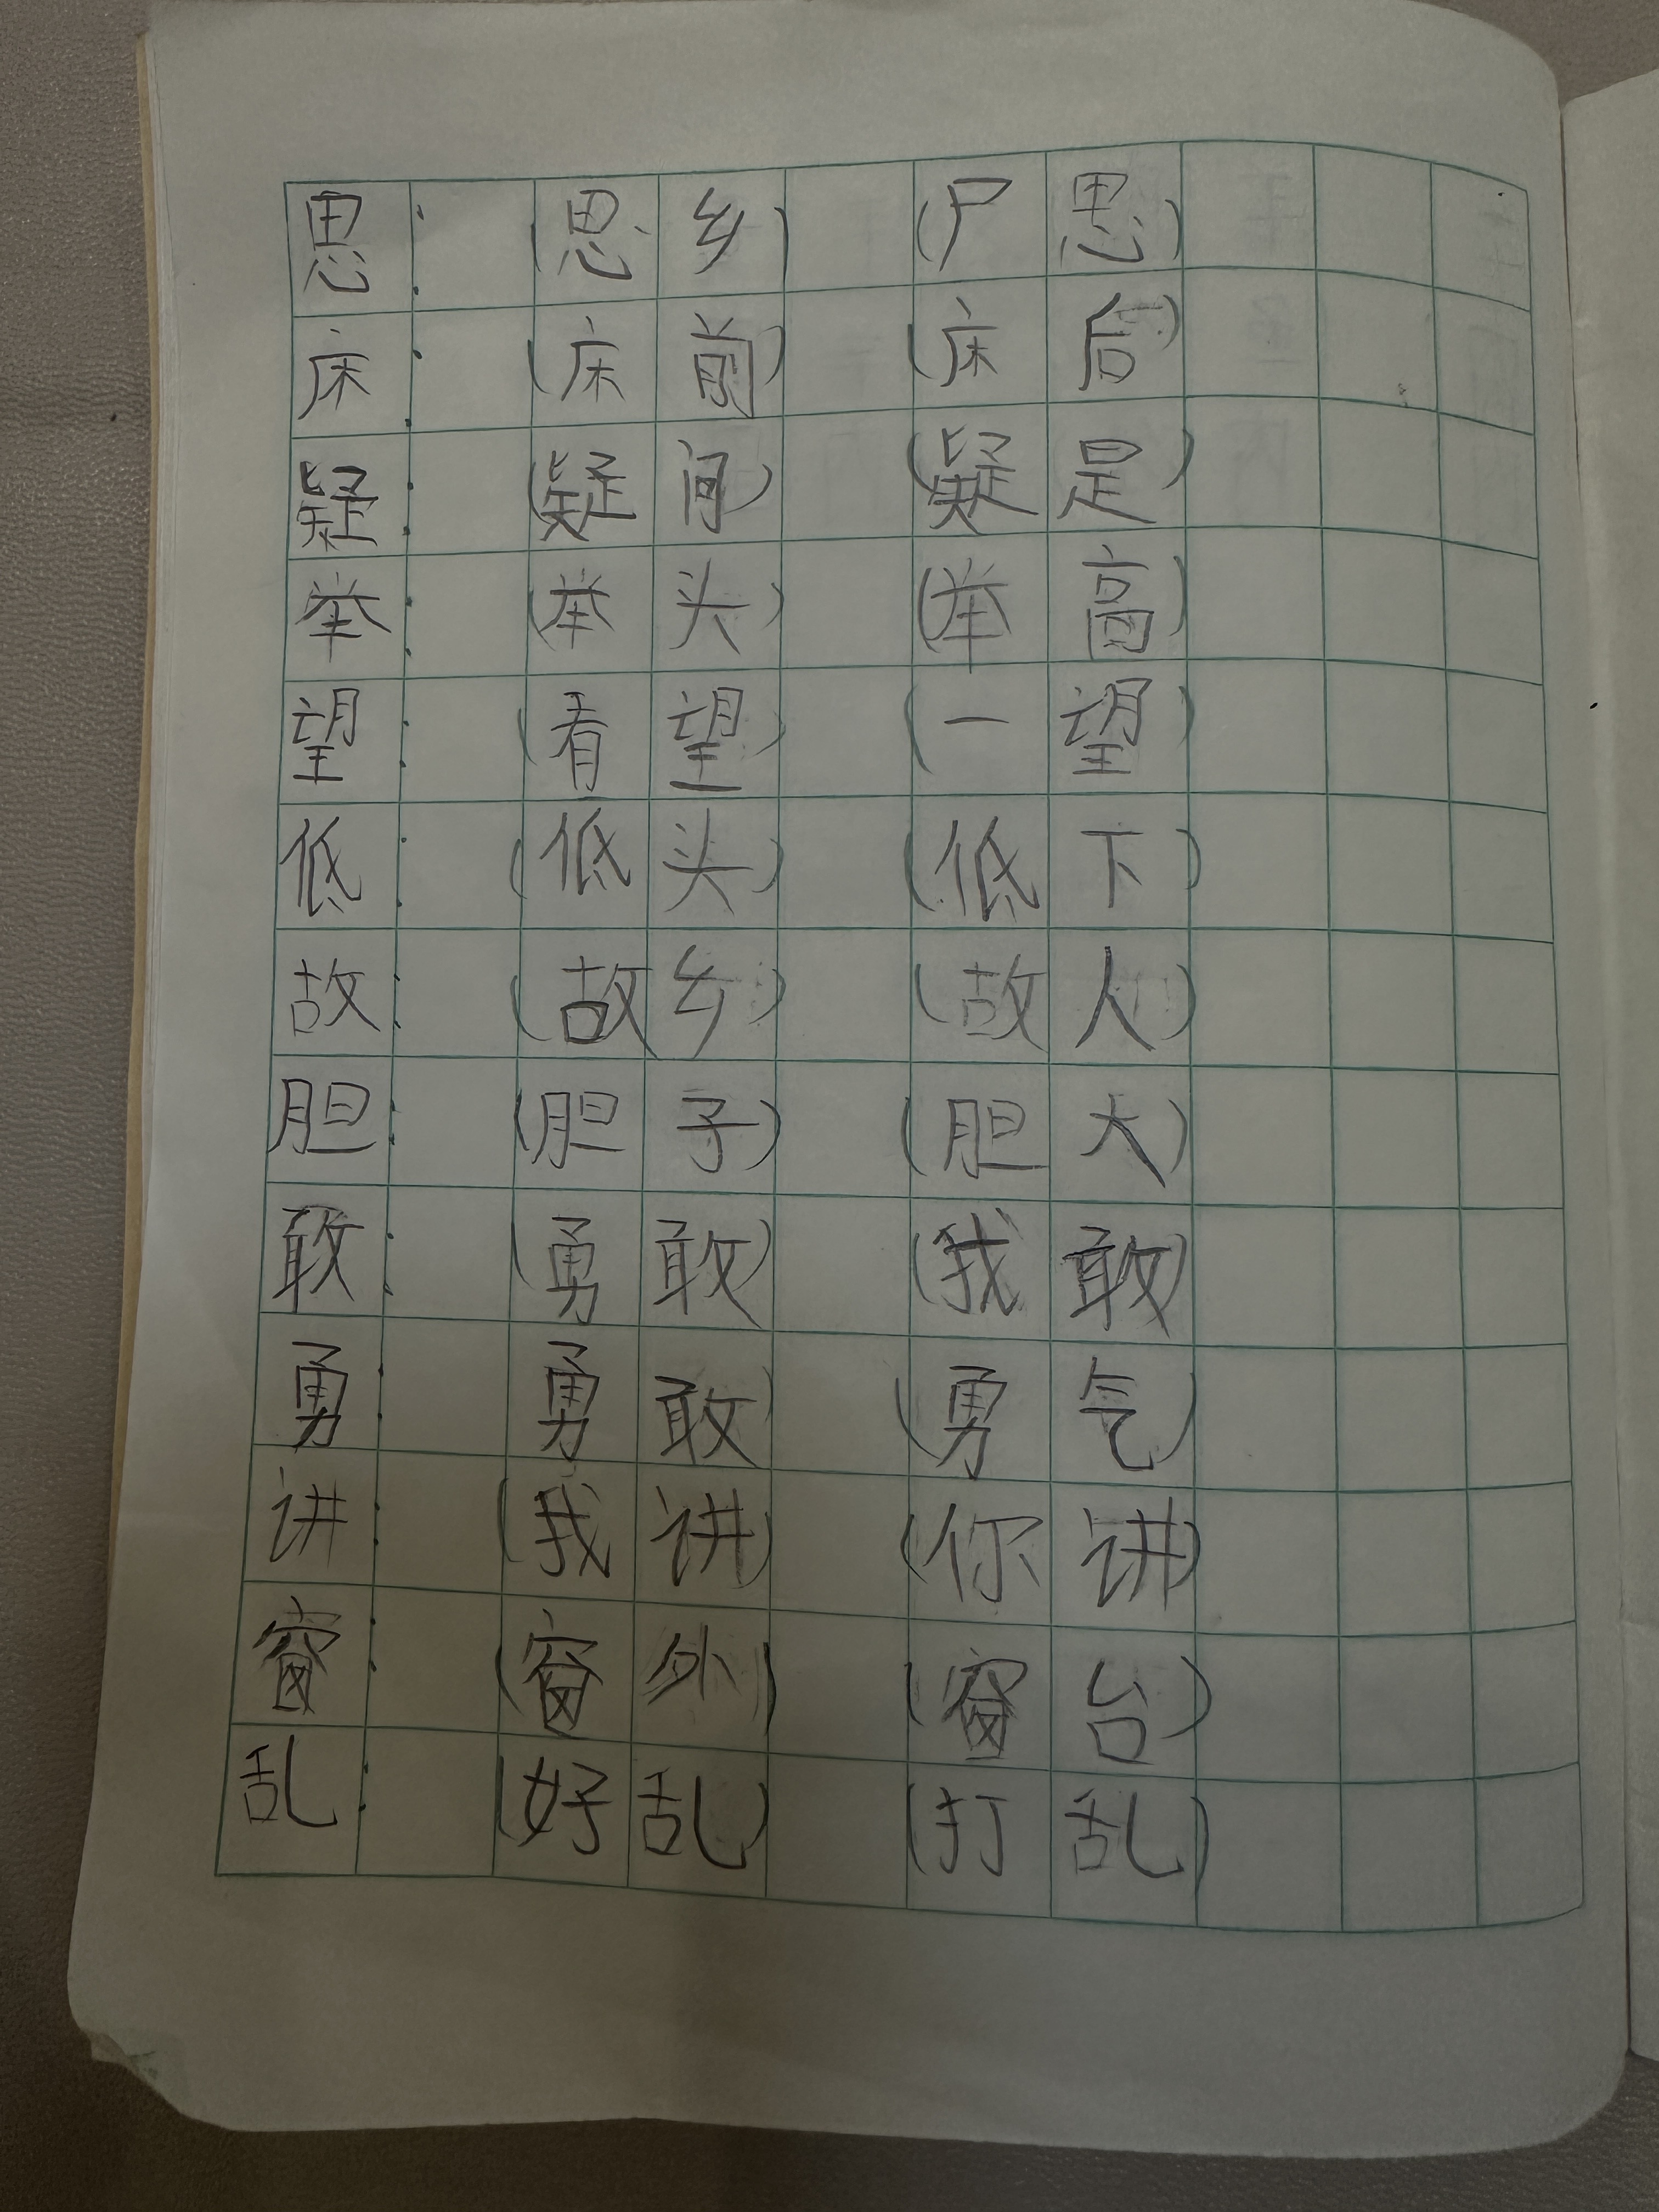 思：（思乡）（尸思）
床：（床前）（床后）
疑：（疑问）（疑是）
举：（举头）（举高）
望：（看望）（一望）
低：（低头）（低下）
故：（故乡）（故人）
胆：（胆子）（胆大）
敢：（勇敢）（我敢）
勇：勇敢）（勇气）
讲：（我讲）（你讲）
窗：（窗外）（窗台）
乱：（好乱）（打乱）